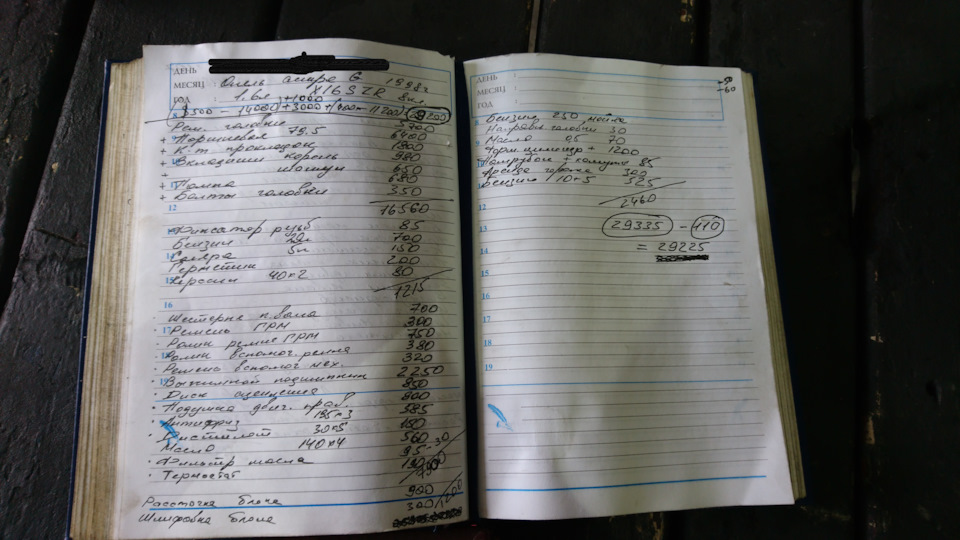 ДЕНЬ
МЕСЯЦ : Опель астра G 1998г
ГОД : 1.6л X16SZR 8кл
+1000
8500 - 14000 + 3000 +
Рем. головки 5700
+ Поршневая 79.5 6400
+ К-т прокладок 1800
+ Вкладыши корень 980
+ шатун 650
+ Помпа 680
+ Болты головки 350
12 16560
Фиксатор резьб 85
Бензин 20л 700
Соляра 5л 150
Герметик 200
Керосин 40×2 80
1215
16
· Шестерня к.вала 700
· Ремень ГРМ 300
· Ролик ремня ГРМ 750
· Ролик вспомог. ремня 380
· Ремень вспомог. мех. 320
· Выжимной подшипник 2250
· Диск сцепления 850
· Подушка двиг. прав. 800
· Антифриз 195×3 585
· Дистилят 30×5 150
Масло 140×4 560
· Фильтр масла 95
· Термостат
Расточка блока 900
Шлифовка блока 300
ДЕНЬ :
МЕСЯЦ :
ГОД :
-50
-60
8 Бензин 250 мойка
Направл. головки 30
9 Масло 0.5 70
Торм. цилиндр + 1200
Патрубок + хомуты 85
300
Бензин 10×5 525
12 2460
13 29335 - 110
14 = 29225
15
16
17
18
19